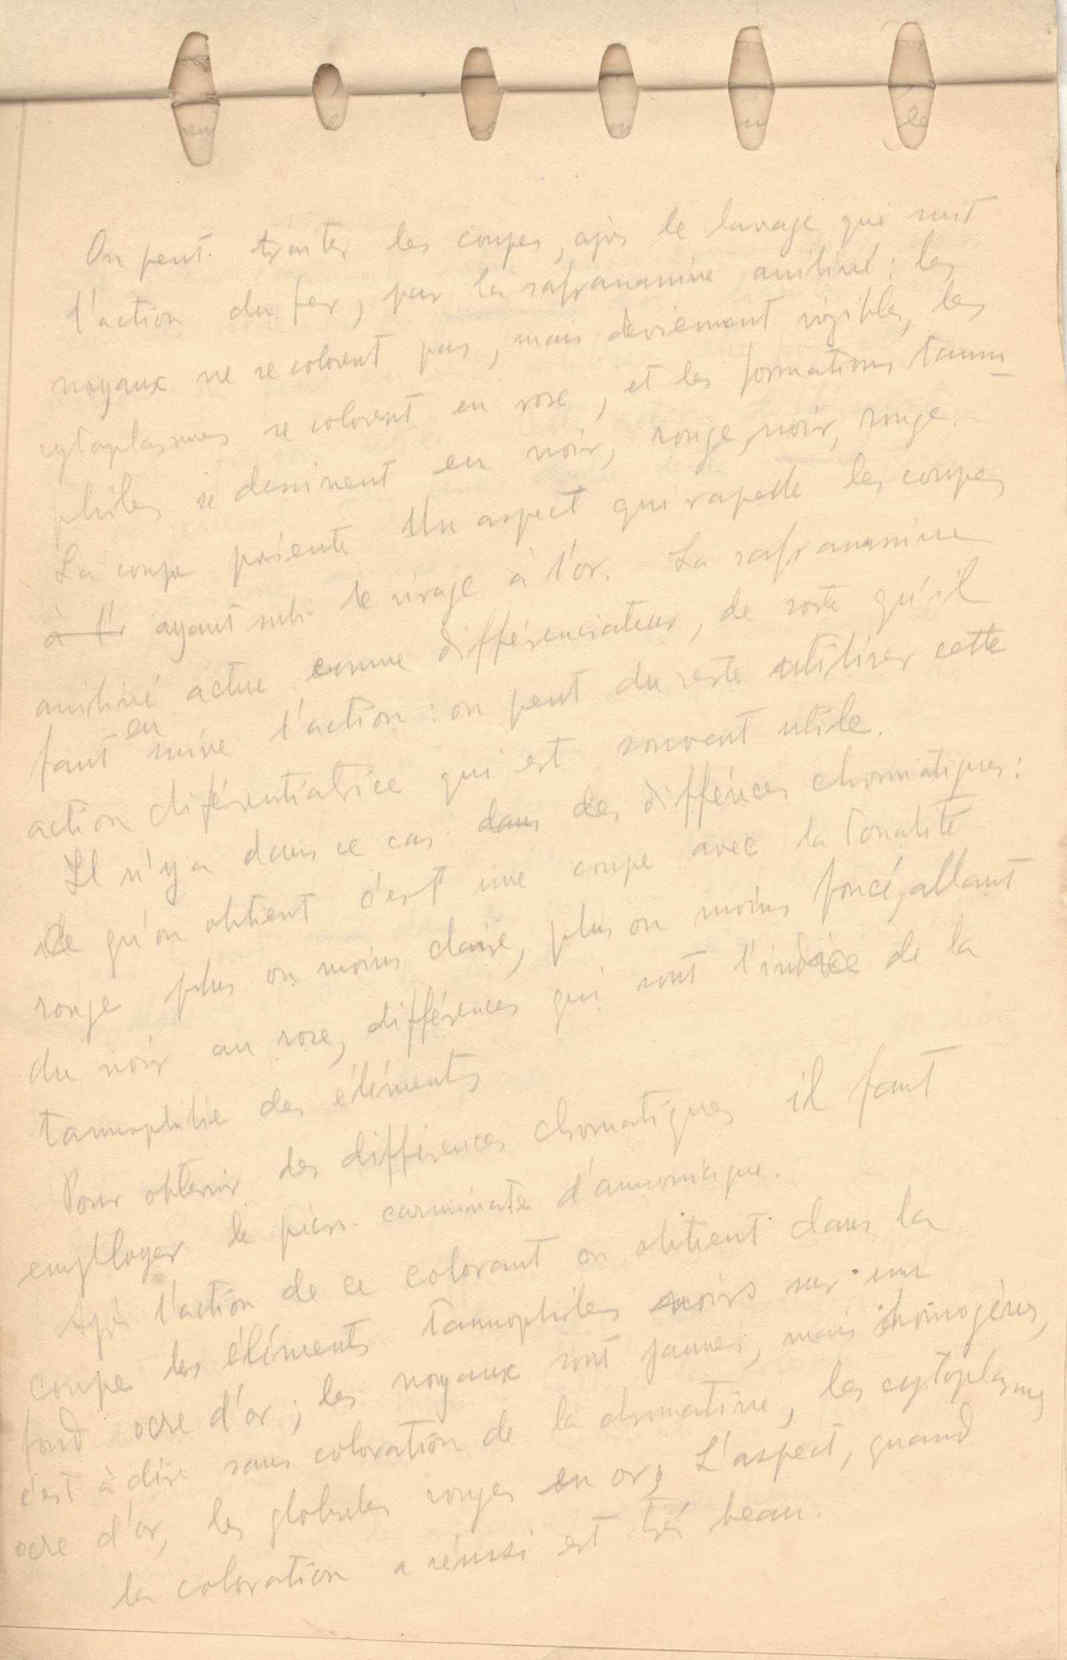 On peut traiter les coupes, après le lavage qui suit
l'action du fer, par la safranamine aniliné : les
noyaux ne se colorent pas, mais deviennent visibles, les
cytoplasmes se colorent en rose, et les formations tanno
philes se dessinent en noir, rouge noir, rouge.
La coupe présente un aspect qui rapelle les coupes
à l'r ayant subi le virage à l'or. La safranamine
aniliné actue comme différenciateur, de sorte qu'il
faut en suivre l'action : on peut du reste utiliser cette
action diférentiatrice qui est souvent utile.
Il n'y a dans ce cas dans des différences chromatiques :
Ce qu'on obtient c'est une coupe avec la tonalité
rouge plus ou moins claire, plus ou moins foncé, allant
du noir au rose, différences qui sont l'indice de la
tannophilie des éléments
Pour obtenir des différences chromatiques il faut
employer le picro-carminate d'ammoniaque.
Après l'action de ce colorant on obtient dans la
coupe les éléments tannophiles noirs sur un
fond ocre d'or ; les noyaux sont jaunes, mais homogènes,
c'est à dire sans coloration de la chromatine, les cytoplasmes
ocre d'or, les globules rouges en or, L'aspect, quand
la coloration a réussi est très beau.